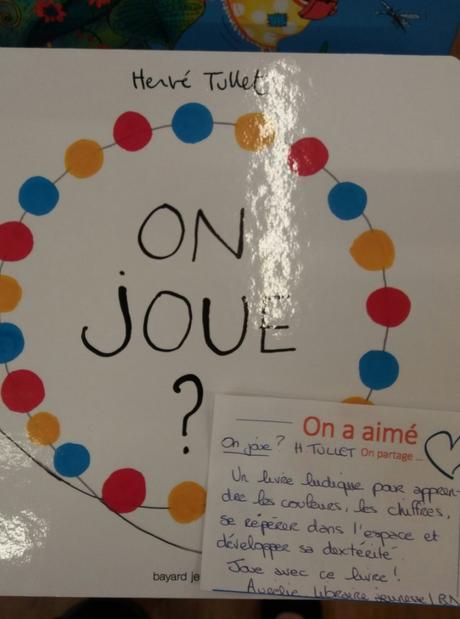 Hervé Tullet
ON
JOUE
?
bayard je
On a aimé
On joue ? H TULLET On partage ...
Un livre ludique pour appren-
dre les couleurs, les chiffres,
se répérer dans l'espace et
développer sa dextérité.
Joue avec ce livre !
Aurélie libraire jeunesse